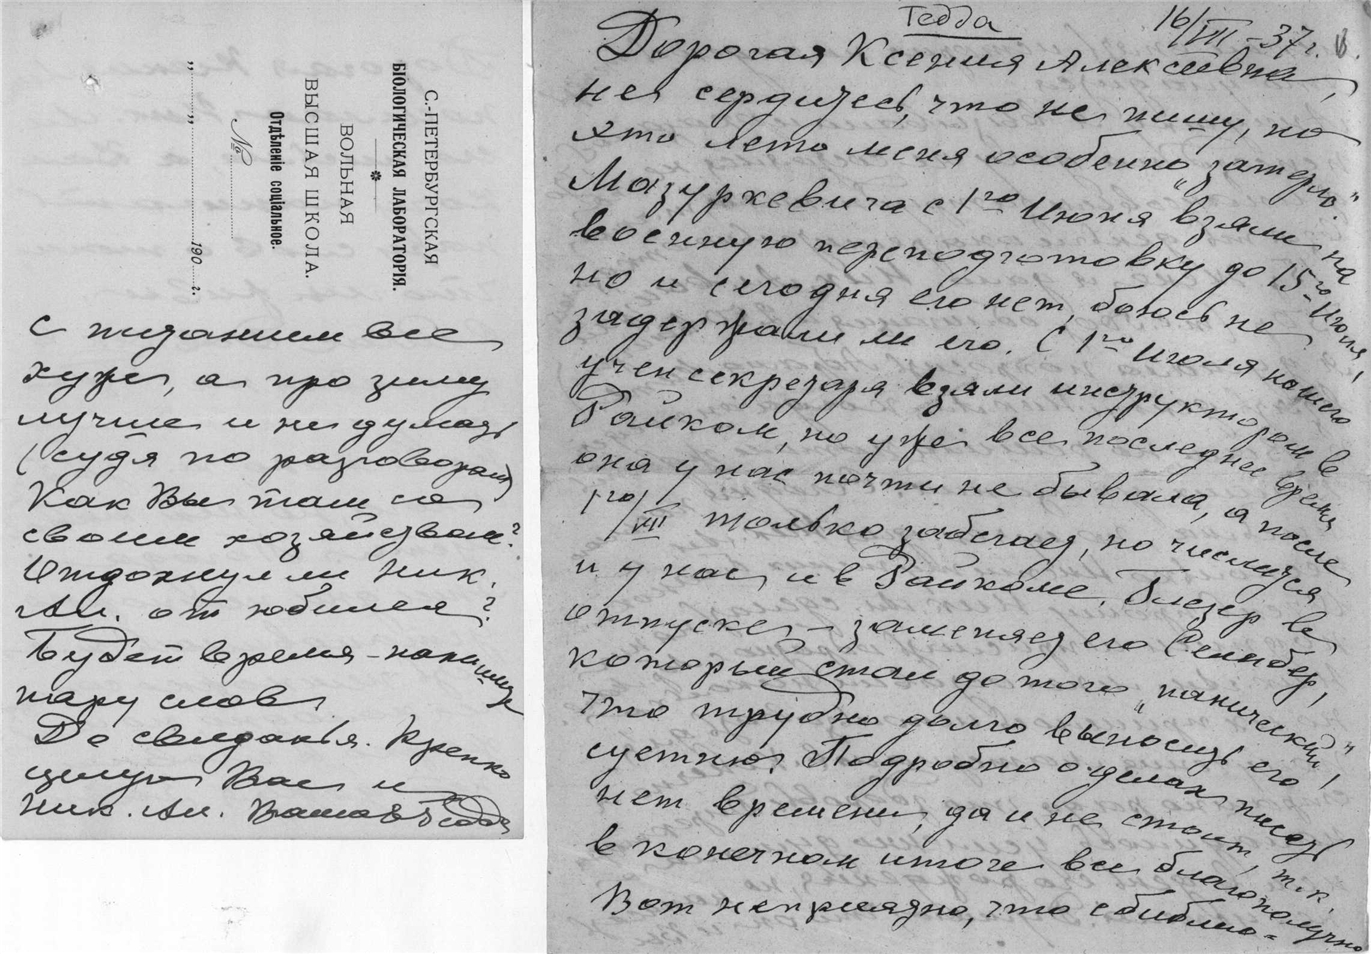 Тедда
16/VII–37 г.
Дорогая Ксения Алексеевна,
не сердитесь, что не пишу, но
это лето меня особенно „затерло“
Мазуркевича с 1го Июня взяли на
военную переподготовку до 15го Июля,
но и сегодня его нет, боюсь не
задержали ли его. С 1го Июля нашего
учен секретаря взяли инструктором в
Райком, но уже все последнее время
она у нас почти не бывала, а после
1го/VII только забегает, но числится
и у нас и в Райкоме. Глезер в
отпуске – заменяет его
который стал до того „панический“,
что трудно долго выносить его
суетню. Подробно о делах писать
нет времени, да и не стоит, т.к.
в конечном итоге все благополучно
Вот неприятно, что с библио-
С.-ПЕТЕРБУРГСКАЯ
БІОЛОГИЧЕСКАЯ ЛАБОРАТОРІЯ.
ВОЛЬНАЯ
ВЫСШАЯ ШКОЛА.
Отдѣленіе соціальное.
№
„ “ 190 г.
с зданием все
хуже, а про зиму
лучше и не думать
(судя по разговорам)
Как Вы там со
своим хозяйством?
Отдохнул ли Ник.
Ал. от юбилея?
Будет время – напишите
пару слов
До свиданья. Крепко
целую Вас и
Ник. Ал. Ваша Тедда